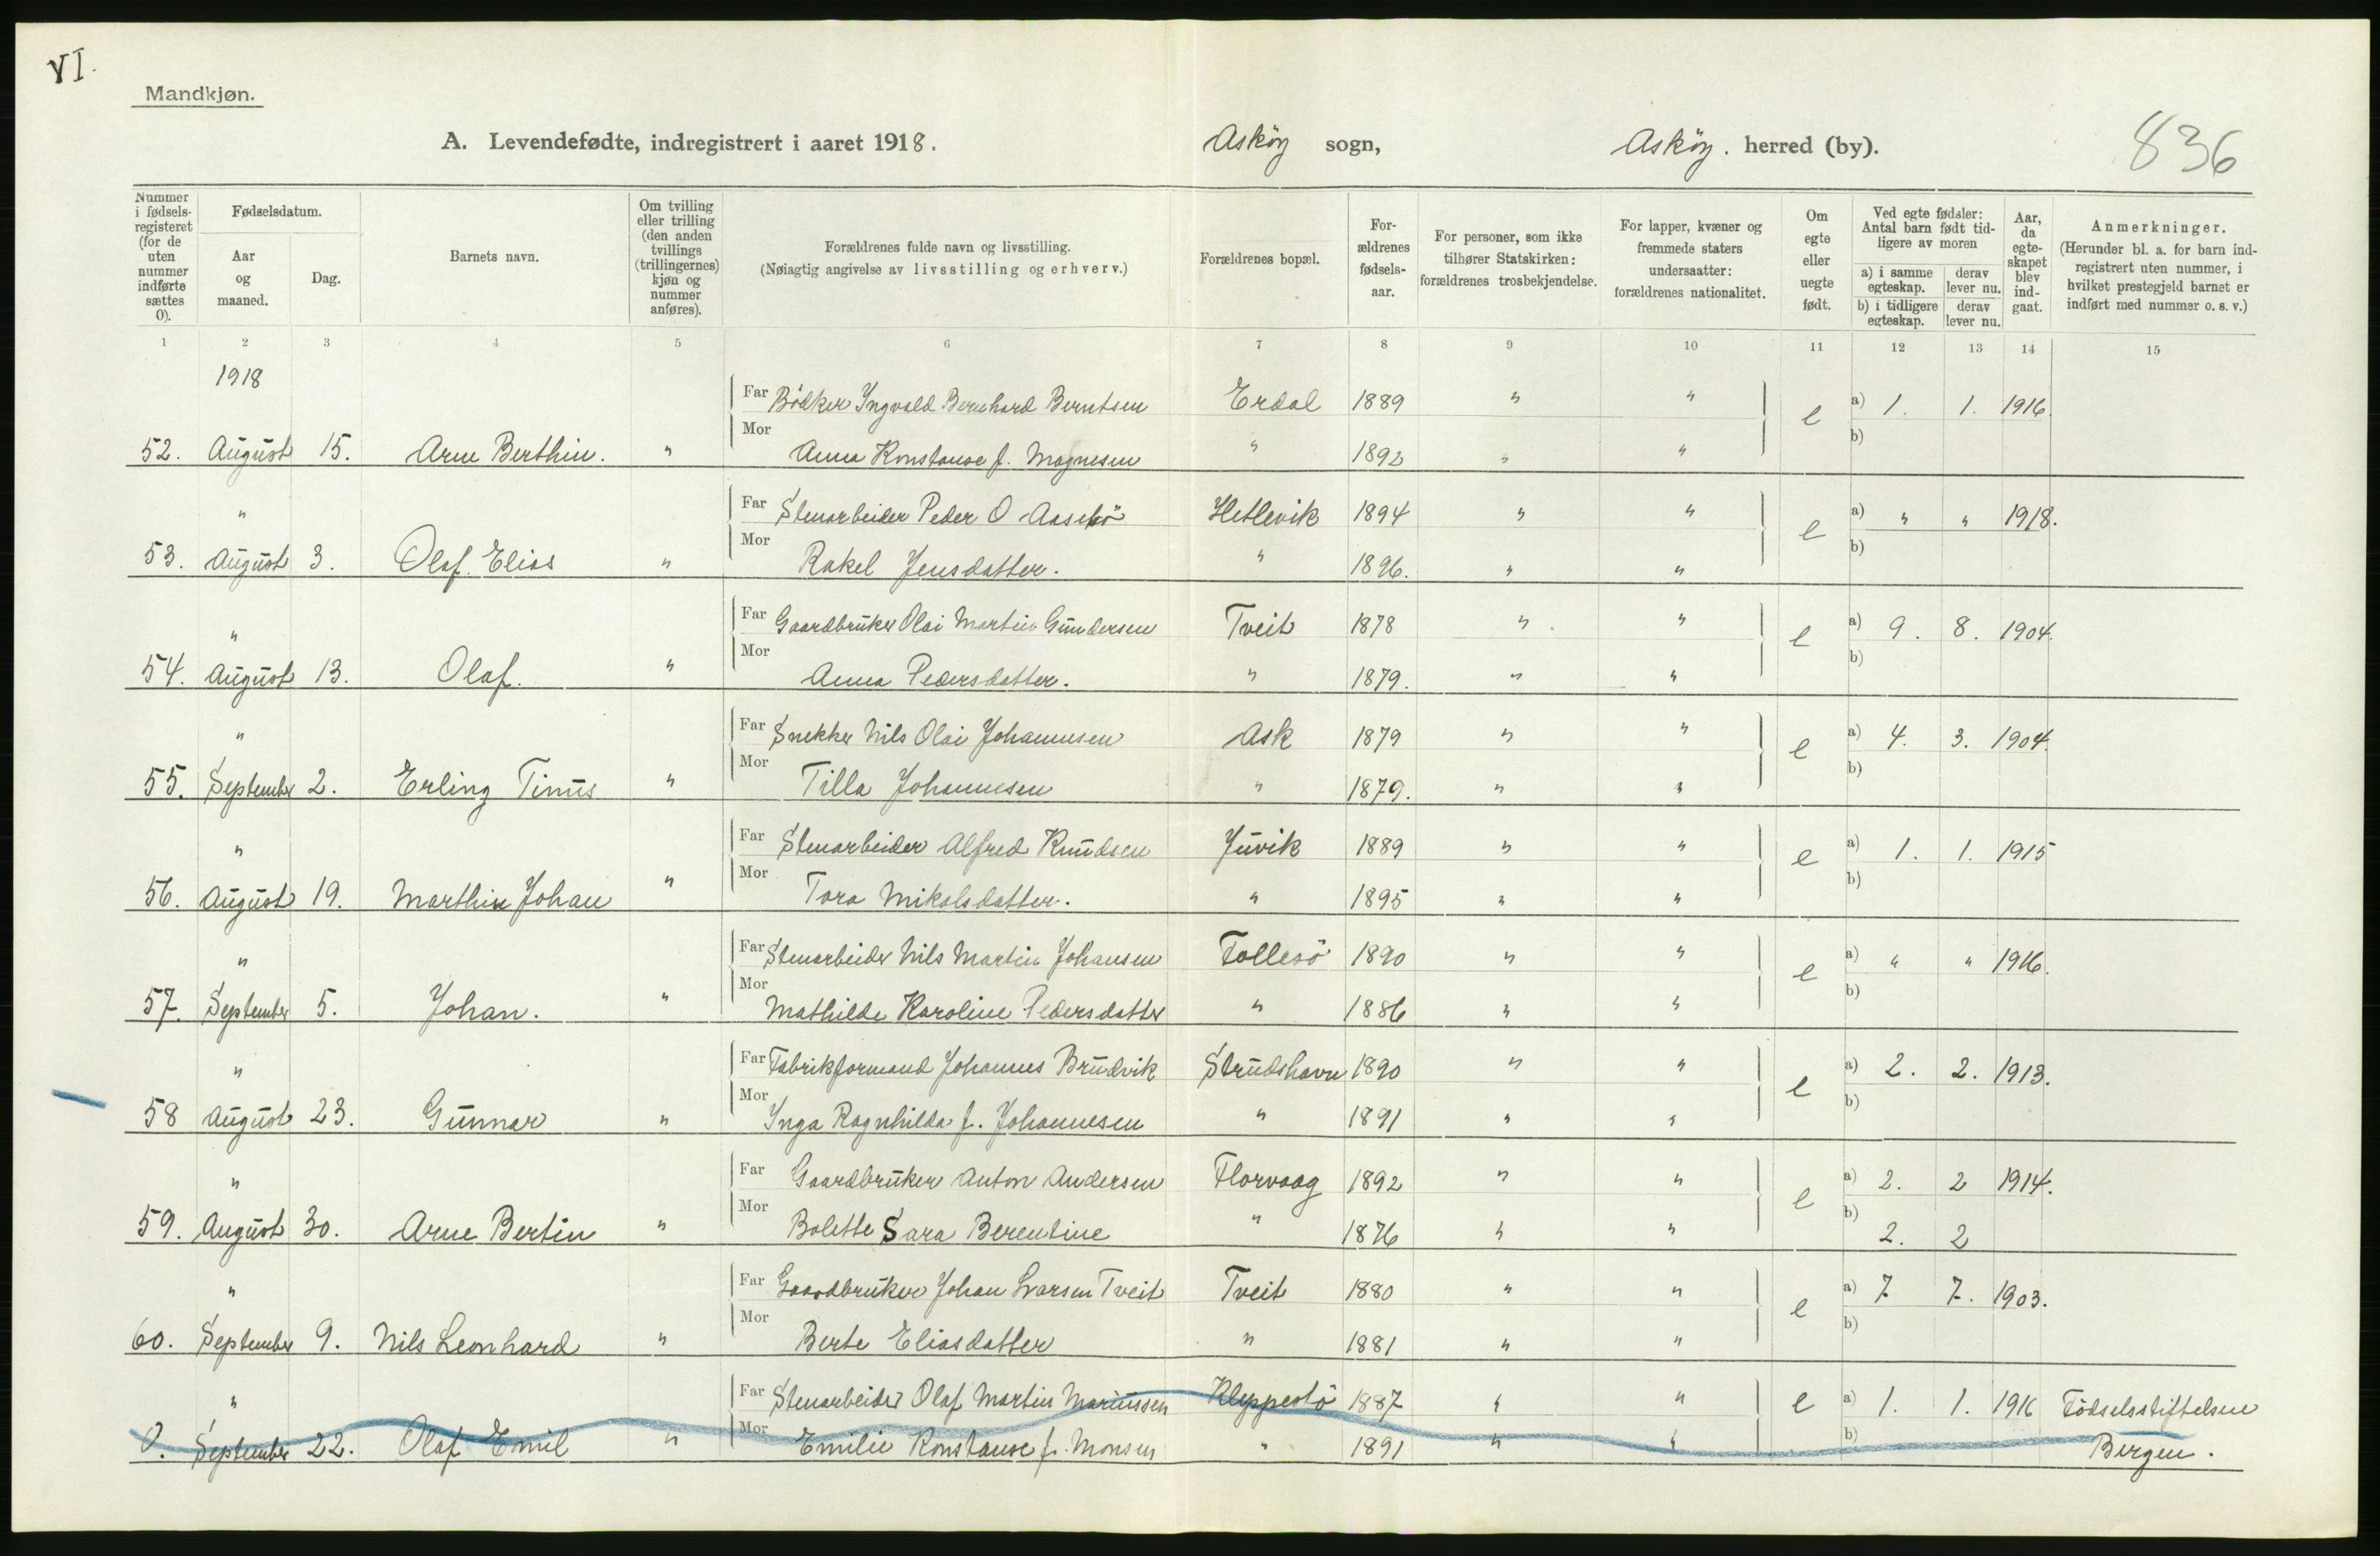 VI.
Mandkjøn.
A. Levendefødte, indregistrert i aaret 1918. Askøy sogn, Askøy. herred (by). 836
Nummer i fødselsregisteret (for de uten nummer indførte sættes 0).
Fødselsdatum.
Aar og maaned.
Dag.
Barnets navn.
Om tvilling eller trilling (den anden tvillings (trillingernes) kjøn og nummer anføres).
Forældrenes fulde navn og livsstilling.
(Nøiagtig angivelse av livsstilling og erhverv.)
Forældrenes bopæl.
Forældrenes fødselsaar.
For personer, som ikke tilhører Statskirken: forældrenes trosbekjendelse.
For lapper, kvæner og fremmede staters undersaatter: forældrenes nationalitet.
Om egte eller uegte født.
Ved egte fødsler: Antal barn født tidligere av moren
a) i samme egteskap. derav lever nu.
b) i tidligere egteskap. derav lever nu.
Aar, da egteskapet blev indgaat.
Anmerkninger.
(Herunder bl. a. for barn indregistrert uten nummer, i hvilket prestegjeld barnet er indført med nummer o. s. v.)
1 2 3 4 5 6 7 8 9 10 11 12 13 14 15
1918
Far Bödker Ingvald Bernhard Berntsen Erdal 1889 " " e a) 1. 1. 1916.
52. August 15. Arne Berthin. " Mor Anna Konstanse f. Magnesen " 1892 " " b)
" Far Stenarbeider Peder O Aasebö Hetlevik 1894 " " e a) " " 1918.
53. August 3. Olaf Elias " Mor Rakel Jensdatter. " 1896. " " b)
" Far Gaardbruker Olai Martin Gundersen Tveit 1878 " " e a) 9. 8. 1904.
54. August 13. Olaf. " Mor Anna Pedersdatter. " 1879. " " b)
" Far Snekker Nils Olai Johannesen Ask 1879 " " e a) 4. 3. 1904.
55. September 2. Erling Tinus " Mor Tilla Johannesen " 1879. " " b)
" Far Stenarbeider Alfred Knudsen Juvik 1889 " " e a) 1. 1. 1915
56. August 19. Marthin Johan " Mor Tora Mikalsdatter. " 1895 " " b)
" Far Stenarbeider Nils Martin Johansen Follesö 1890 " " e a) " " 1916.
57. September 5. Johan. " Mor Mathilde Karoline Pedersdatter " 1886 " " b)
" Far Fabrikformand Johannes Brudvik Strudshavn 1890 " " e a) 2. 2. 1913.
58 August 23. Gunnar " Mor Inga Ragnhilda f. Johannesen " 1891 " " b)
" Far Gaardbruker Anton Andersen Florvaag 1892 " " e a) 2. 2 1914.
59. August 30. Arne Bertin " Mor Bolette Sara Berentine " 1876 " " b) 2. 2
" Far Gaardbruker Johan Larsen Tveit Tveit 1880 " " e a) 7 7. 1903.
60. September 9. Nils Leonhard " Mor Berte Eliasdatter " 1881 " " b)
" Far Stenarbeider Olaf Martin Mariussen Kleppestö 1887 " " e a) 1. 1. 1916 Födselsstiftelsen
0. September 22. Olaf Emil " Mor Emilie Konstanse f. Monsen " 1891 " " b) Bergen.